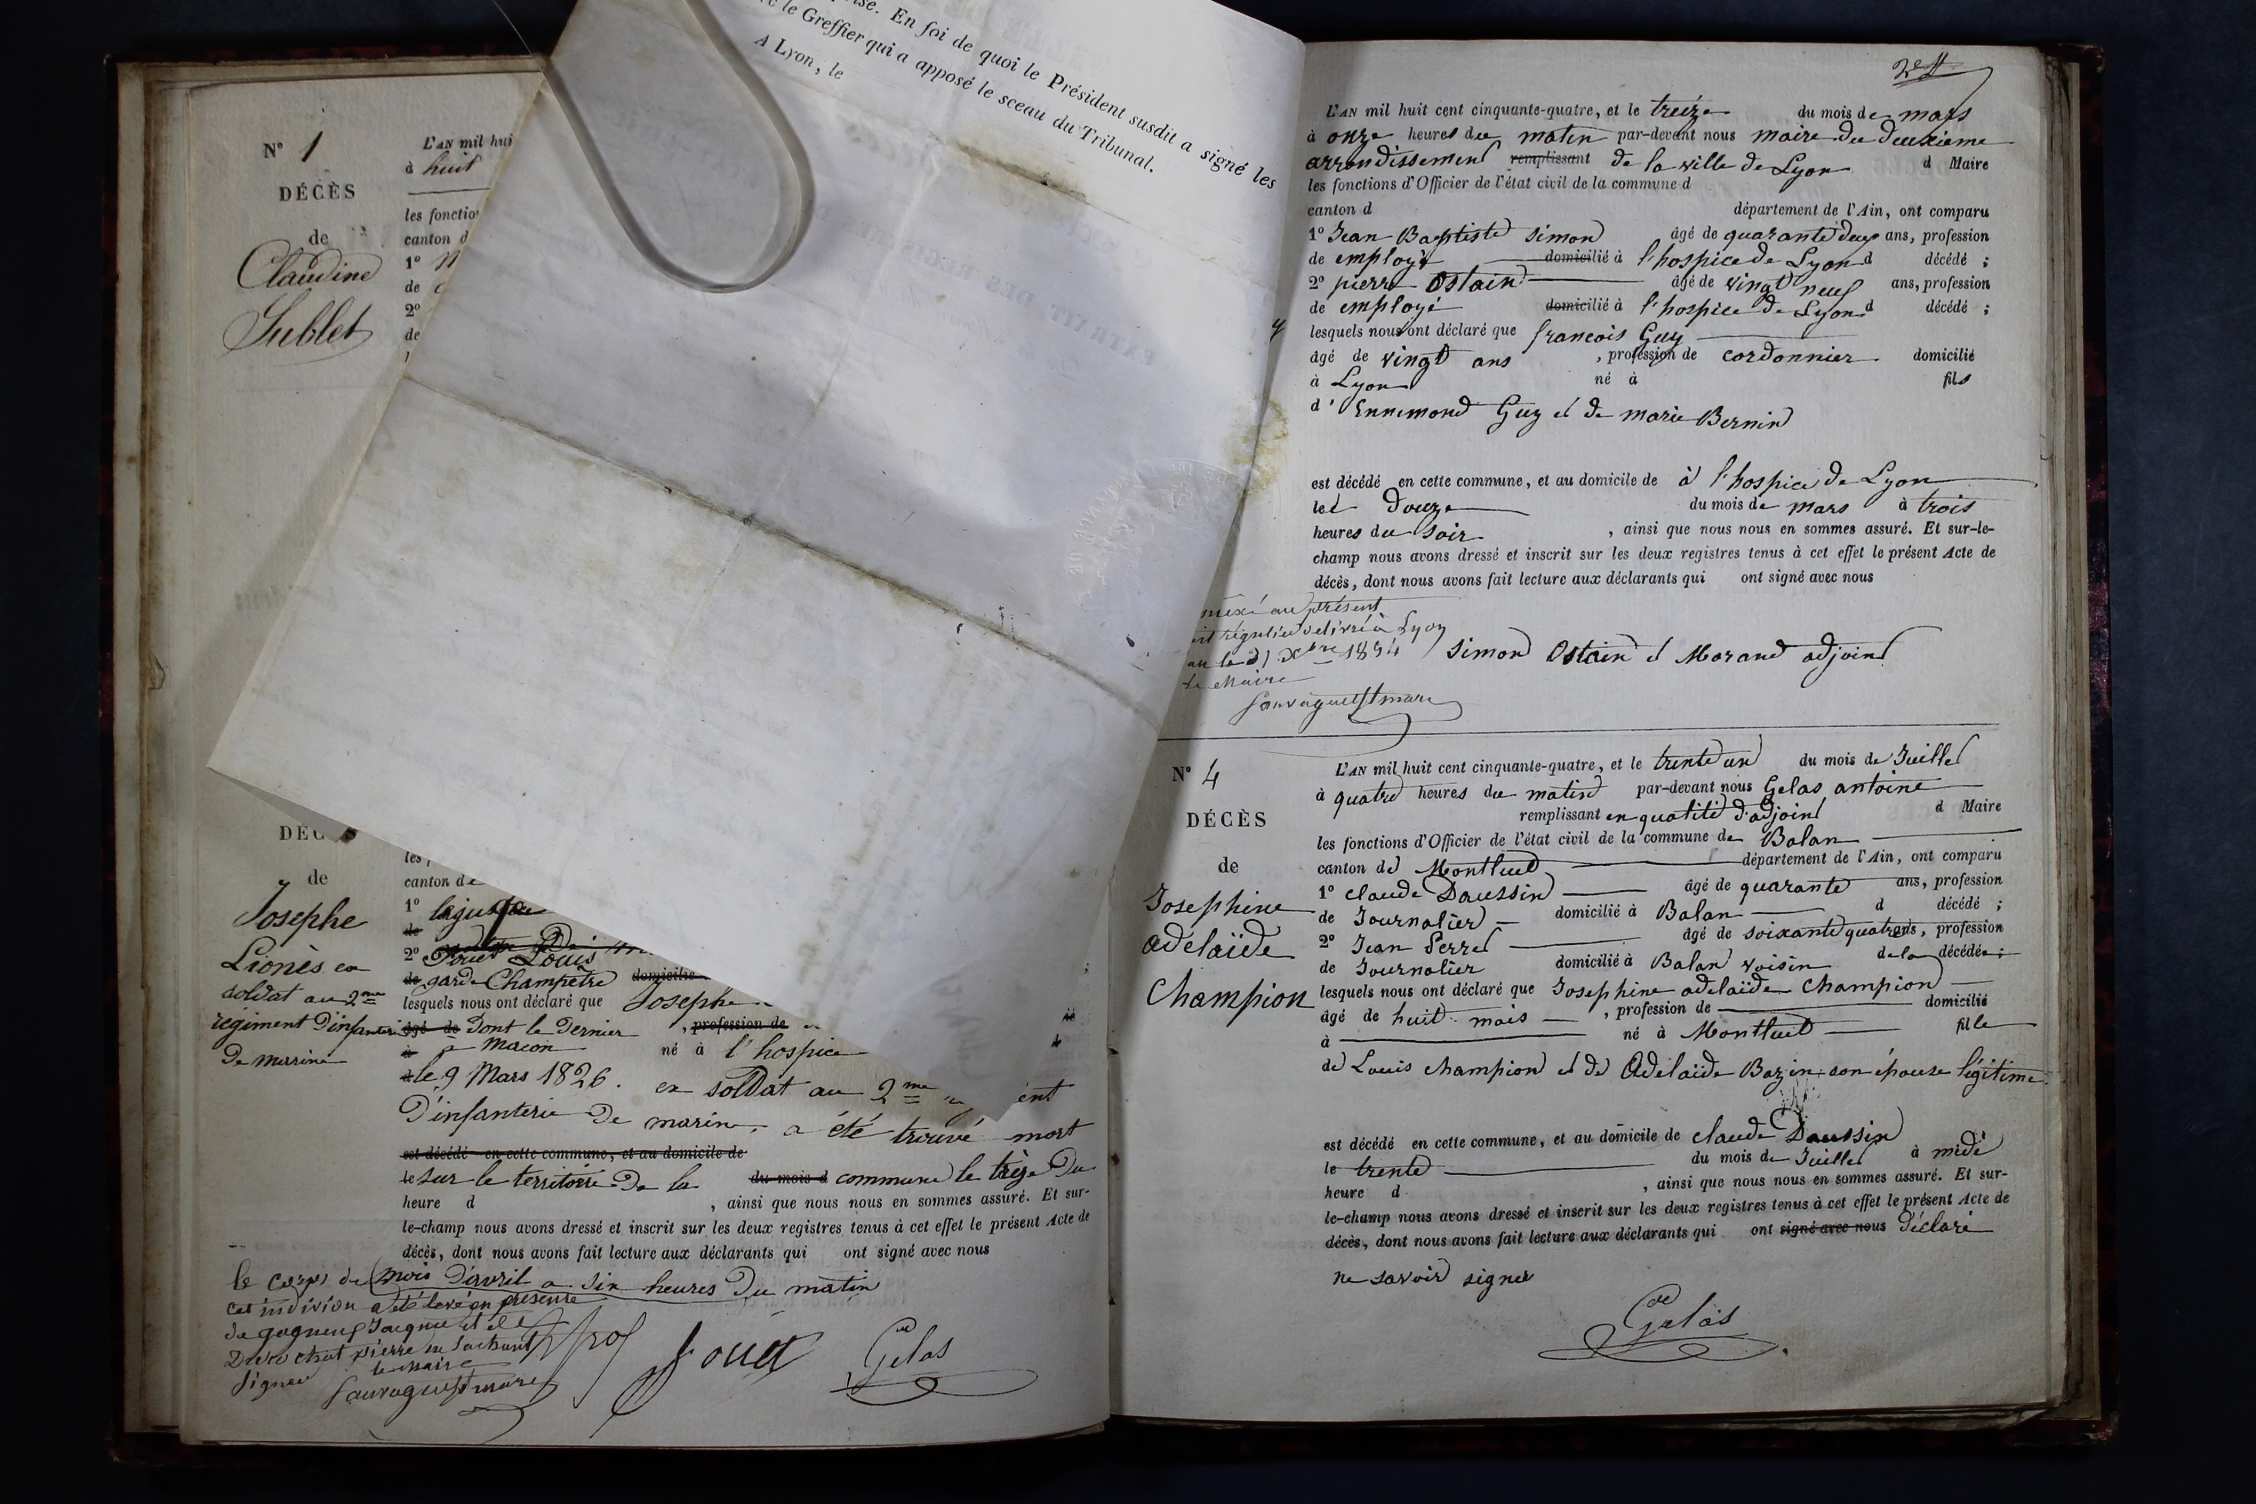 En foi de quoi le Président susdit a signé les
le Greffier qui a apposé le sceau du Tribunal.
A Lyon, le
N° 1
DÉCÈS
de
Claudine
Sublet
L'AN mil hui
à huit
les fonctio
canton d
1°
de
2°
de
DÉC S
de
Josephe
Lionès ex
soldat au 2me
régiment d'infanterie
de marine
les
canton de
1°
de
2° Jouet Louis
de garde Champêtre domicilié
lesquels nous ont déclaré que Josephe
âgé de Dont le Dernier , profession de
à a macon né à l'hospice
le 9 Mars 1826. ex soldat au 2me ent
D'infanterie De marine, a été trouvé mort
est décédé en cette commune, et au domicile de
le sur le territoire De la du mois d commune le trèze Du
heure d , ainsi que nous nous en sommes assuré. Et sur-
le-champ nous avons dressé et inscrit sur les deux registres tenus à cet effet le présent Acte de
décès, dont nous avons fait lecture aux déclarants qui ont signé avec nous
mois D'avril a six heures Du matin
le corps de
cet individu a été levé en présence
de Jacques et de
Pierre ne sachant
signer le Maire
Jouet Gelas
2e
L'AN mil huit cent cinquante-quatre, et le treize du mois de mars
à onze heures du matin par-devant nous maire du deuxième
arrondissement remplissant de la ville de Lyon d Maire
les fonctions d'Officier de l'état civil de la commune d
canton d département de l'Ain, ont comparu
1° Jean Baptiste Simon âgé de quarante deux ans, profession
de employé domicilié à l'hospice de Lyon d décédé ;
2° pierre Ostain âgé de vingt neuf ans, profession
de employé domicilié à l'hospice de Lyon d décédé ;
lesquels nous ont déclaré que francois Guy
âgé de vingt ans , profession de cordonnier domicilié
à Lyon né à fils
d' Ennemond Guy et de marie Bernin
est décédé en cette commune, et au domicile de à l'hospice de Lyon
le douze du mois de mars à trois
heures du soir , ainsi que nous nous en sommes assuré. Et sur-le-
champ nous avons dressé et inscrit sur les deux registres tenus à cet effet le présent Acte de
décès, dont nous avons fait lecture aux déclarants qui ont signé avec nous
au présent
délivré à Lyon
Xbre 1854
le Maire
Simon Ostain et Morand adjoint
N° 4
DÉCÈS
de
Josephine
adélaïde
Champion
L'AN mil huit cent cinquante-quatre, et le trente un du mois de Juillet
à quatre heures du matin par-devant nous Gelas antoine
remplissant en qualité d'adjoint d Maire
les fonctions d'Officier de l'état civil de la commune de Balan
canton de Montluel département de l'Ain, ont comparu
1° Claude Daussin âgé de quarante ans, profession
de Journalier domicilié à Balan d décédé ;
2° Jean Perret âgé de soixante quatre ans, profession
de Journalier domicilié à Balan voisin de la décédée ;
lesquels nous ont déclaré que Josephine adelaïde Champion
âgé de huit mois , profession de domicilié
à né à Montluel fille
de Louis champion et de Adelaïde Bazin son épouse légitime
est décédé en cette commune, et au domicile de claude Daussin
le trente du mois de Juillet à midi
heure d , ainsi que nous nous en sommes assuré. Et sur-
le-champ nous avons dressé et inscrit sur les deux registres tenus à cet effet le présent Acte de
décès, dont nous avons fait lecture aux déclarants qui ont signé avec nous déclaré
ne savoir signer
Gelas